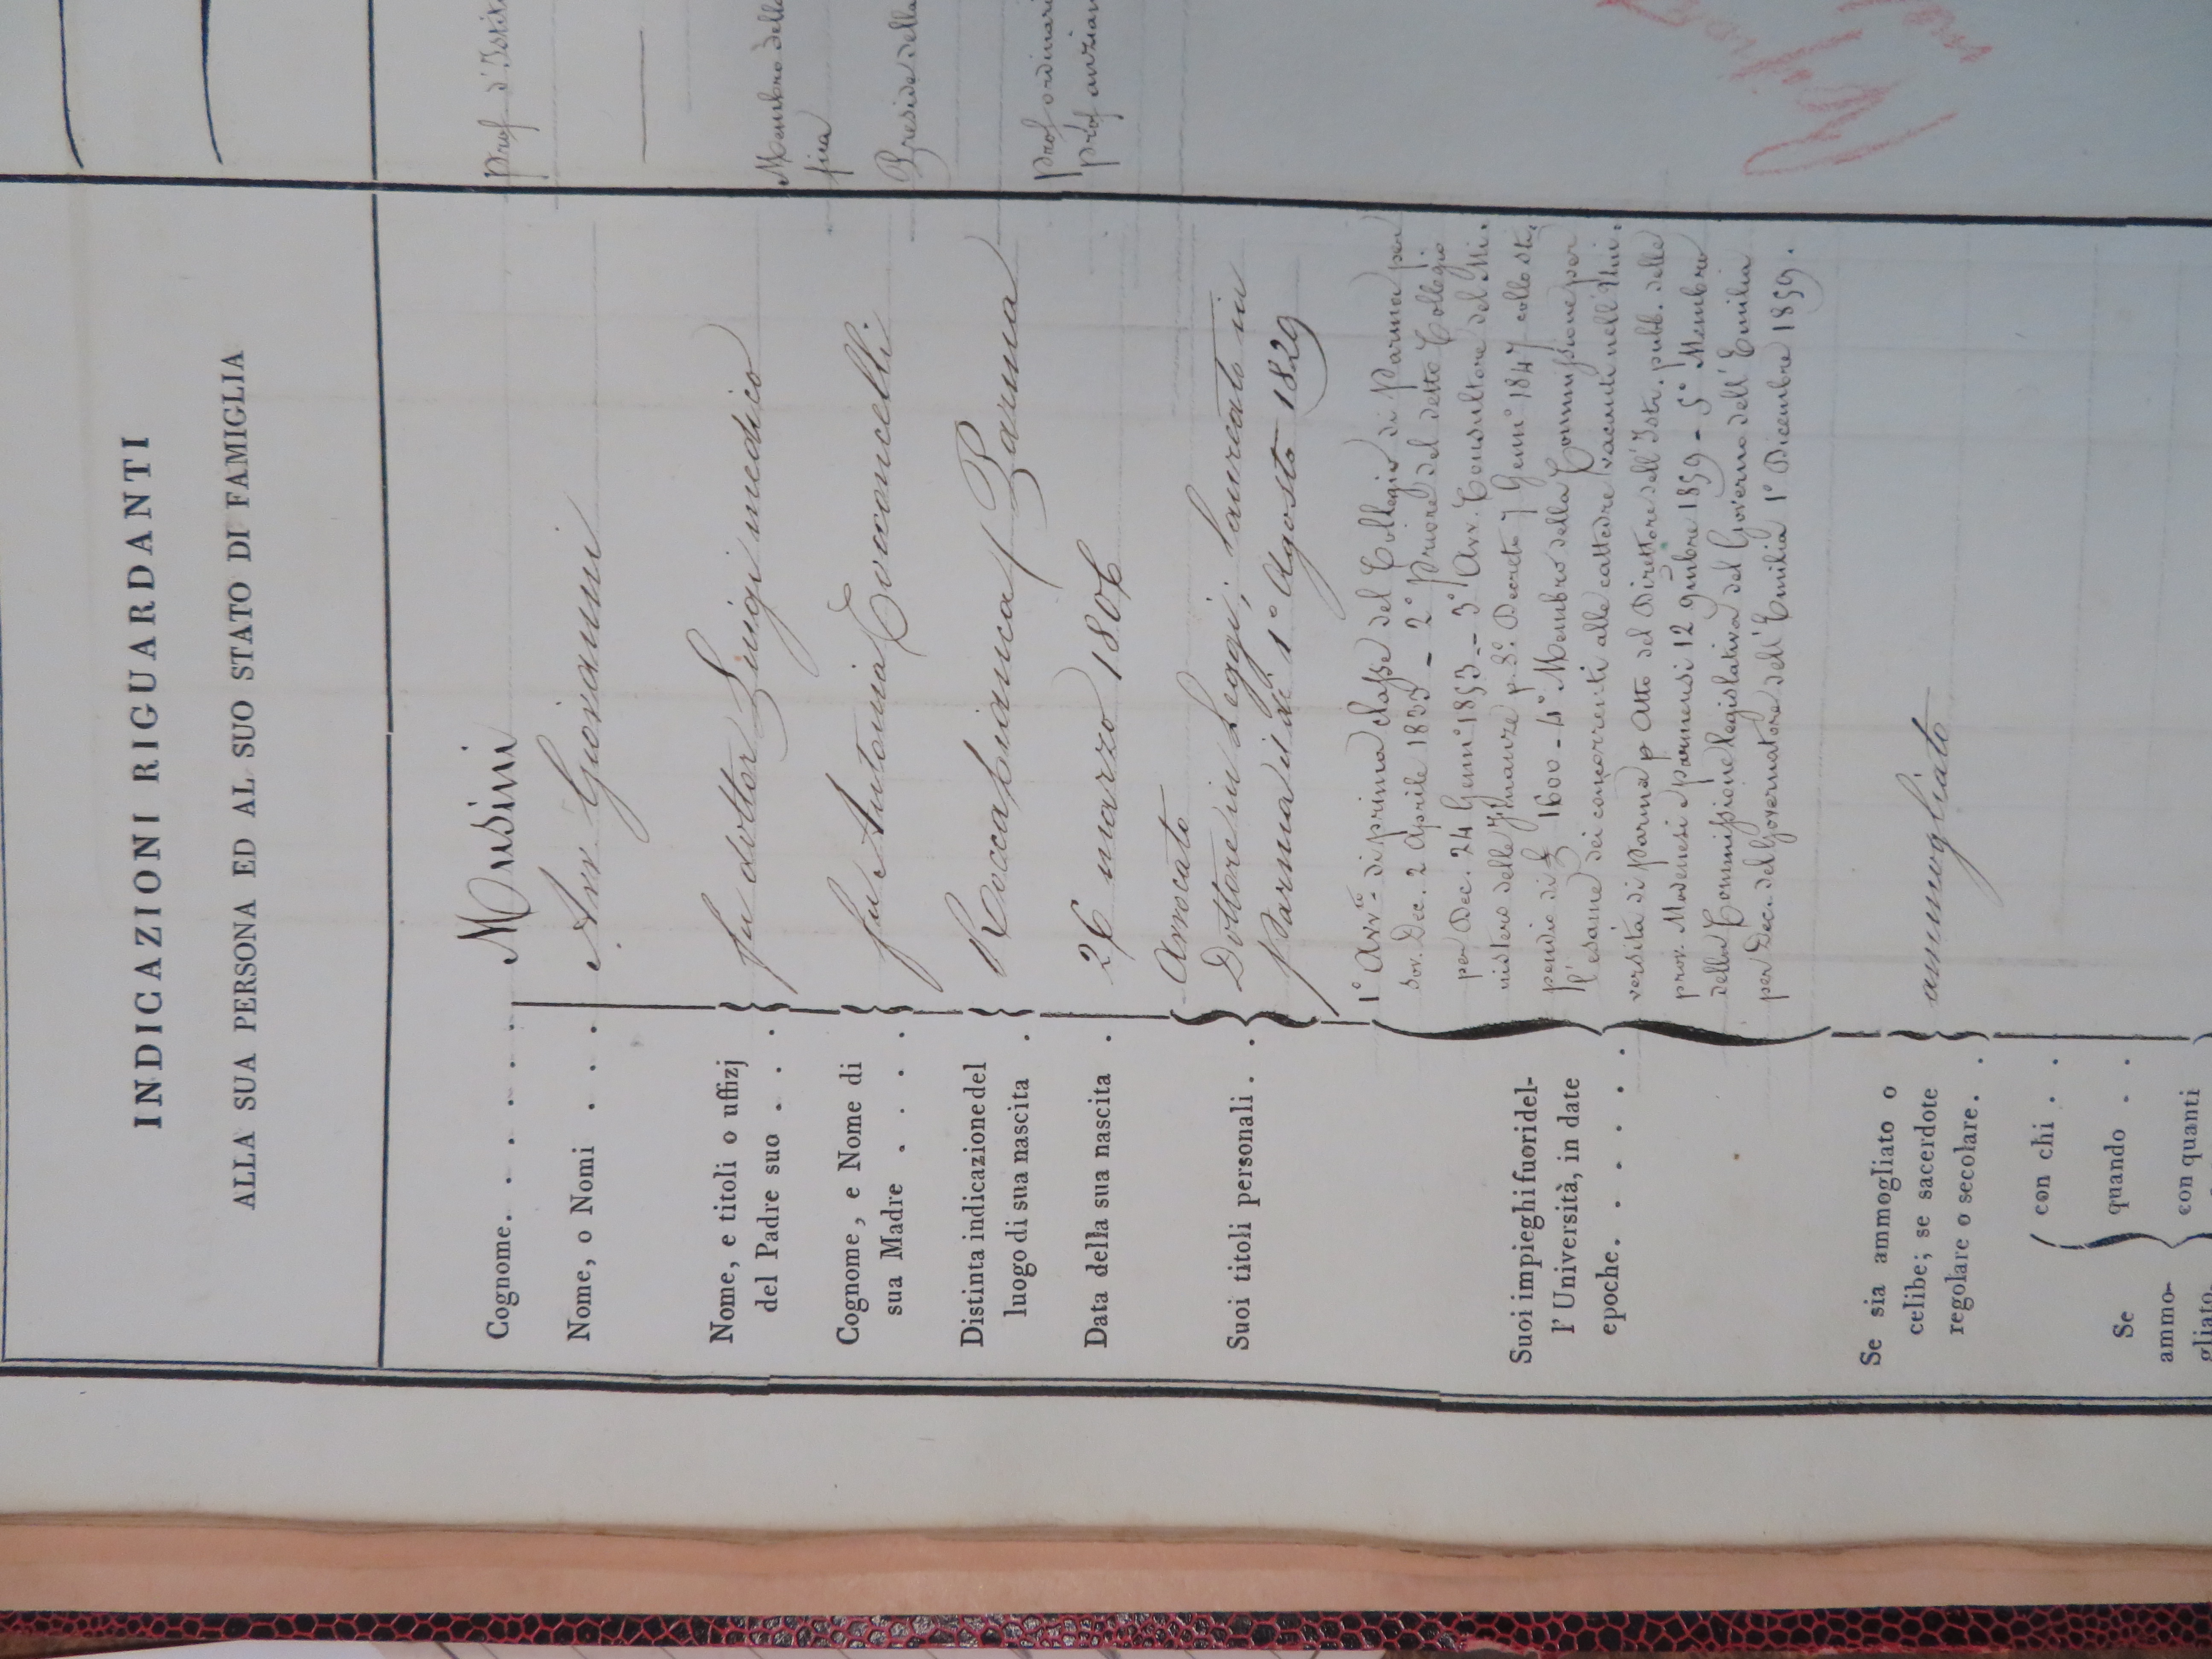 INDICAZIONI RIGUARDANTI
ALLA SUA PERSONA ED AL SUO STATO DI FAMIGLIA
Cognome. . . . . . Musini
Nome, o Nomi . . . . Avv. Giovanni
Nome, e titoli o uffizj
del Padre suo . . . fu dottor Luigi medico
Cognone, e Nome di
sua Madre . . . . fu Antonia
Distinta indicazione del
luogo di sua nascita . Roccabianca / Parma
Data della sua nascita . 26 marzo 1806
Suoi titoli personali . . Avvocato
Dottore in Leggi; laureato in
Parma il dì 1° Agosto 1829
Suoi impieghi fuori del-
l' Università, in date
epoche. . . . . . .
1° Avv.to di prima classe del Collegio di Parma per
Sov. Dec. 2 Aprile 1833 - 2° Priore del detto Collegio
per Dec. 24 Genn.° 1853 - 3° Avv. Consultore del Mi-
nistero delle Finanze p. S.° Decreto 7 Genn.° 1847 collo sti-
pendio di £ 1600 - 4° Membro della Commissione per
l'esame dei concorrenti alle cattedre vacanti nell'Uni-
versità di Parma p Atto del Direttore dell'Istr. pubb. delle
prov. Modenesi e Parmensi 12 9mbre 1859 - 5° Membro
della Commissione legislativa del Governo dell'Emilia
per Dec. del Governatore dell'Emilia 1° Dicembre 1859.
Se sia ammogliato o
celibe; se sacerdote
regolare o secolare. . ammogliato
Se
ammo-
gliato.
con chi . .
quando . .
con quanti
Prof d'Istit
Membro della
Preside della
Prof ordinari
prof anzian